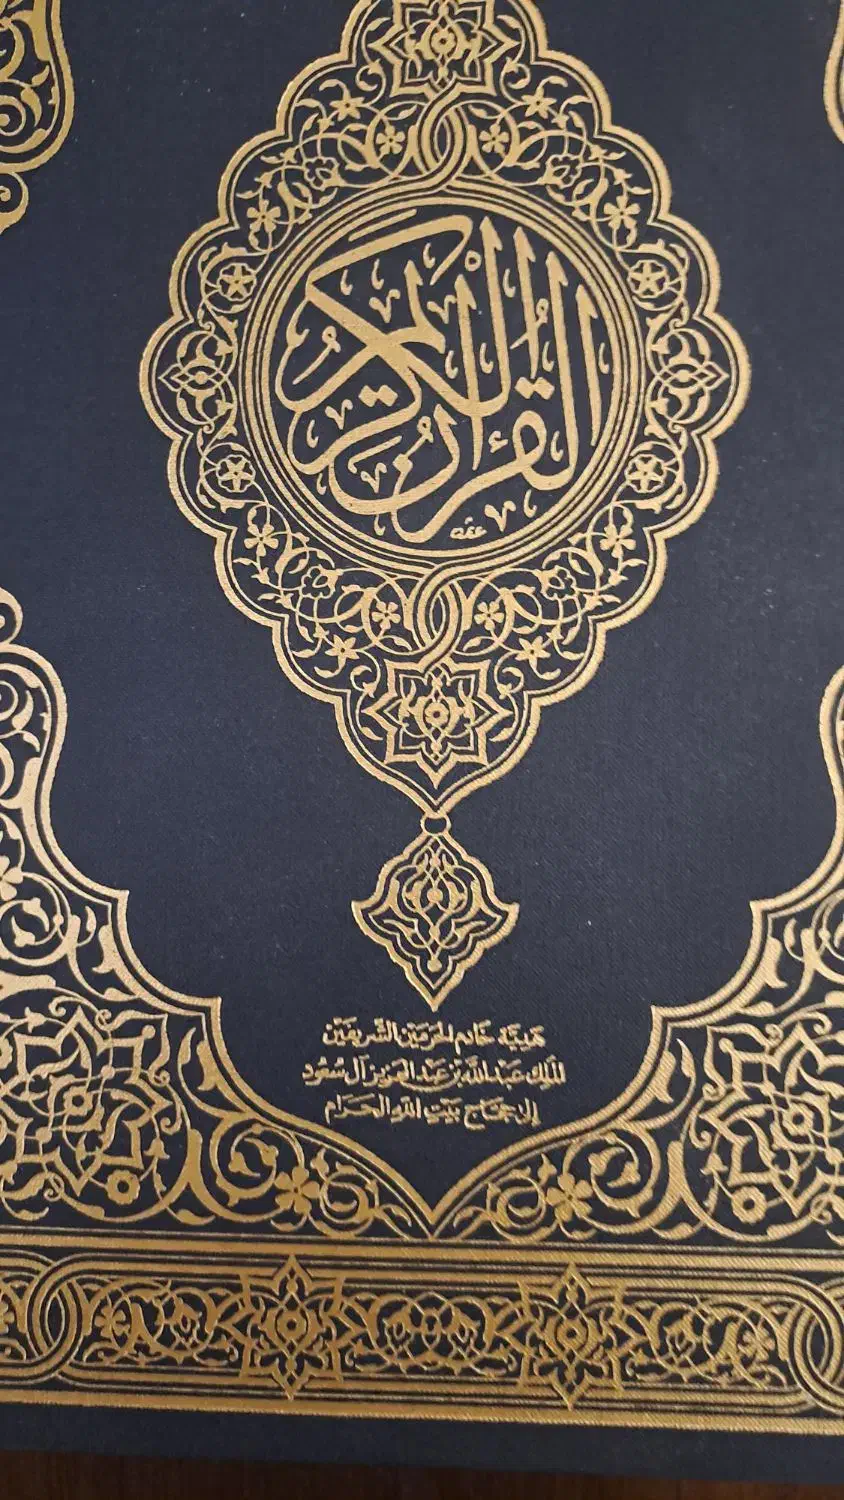 القرآن الكريم
هَديَّة خَادِم الحَرمَين الشَّريفَين
الملِك عَبد اللَّه بن عَبد العَزيز آل سُعُود
إلى حجَّاج بَيْتِ اللَّهِ الحَرَام